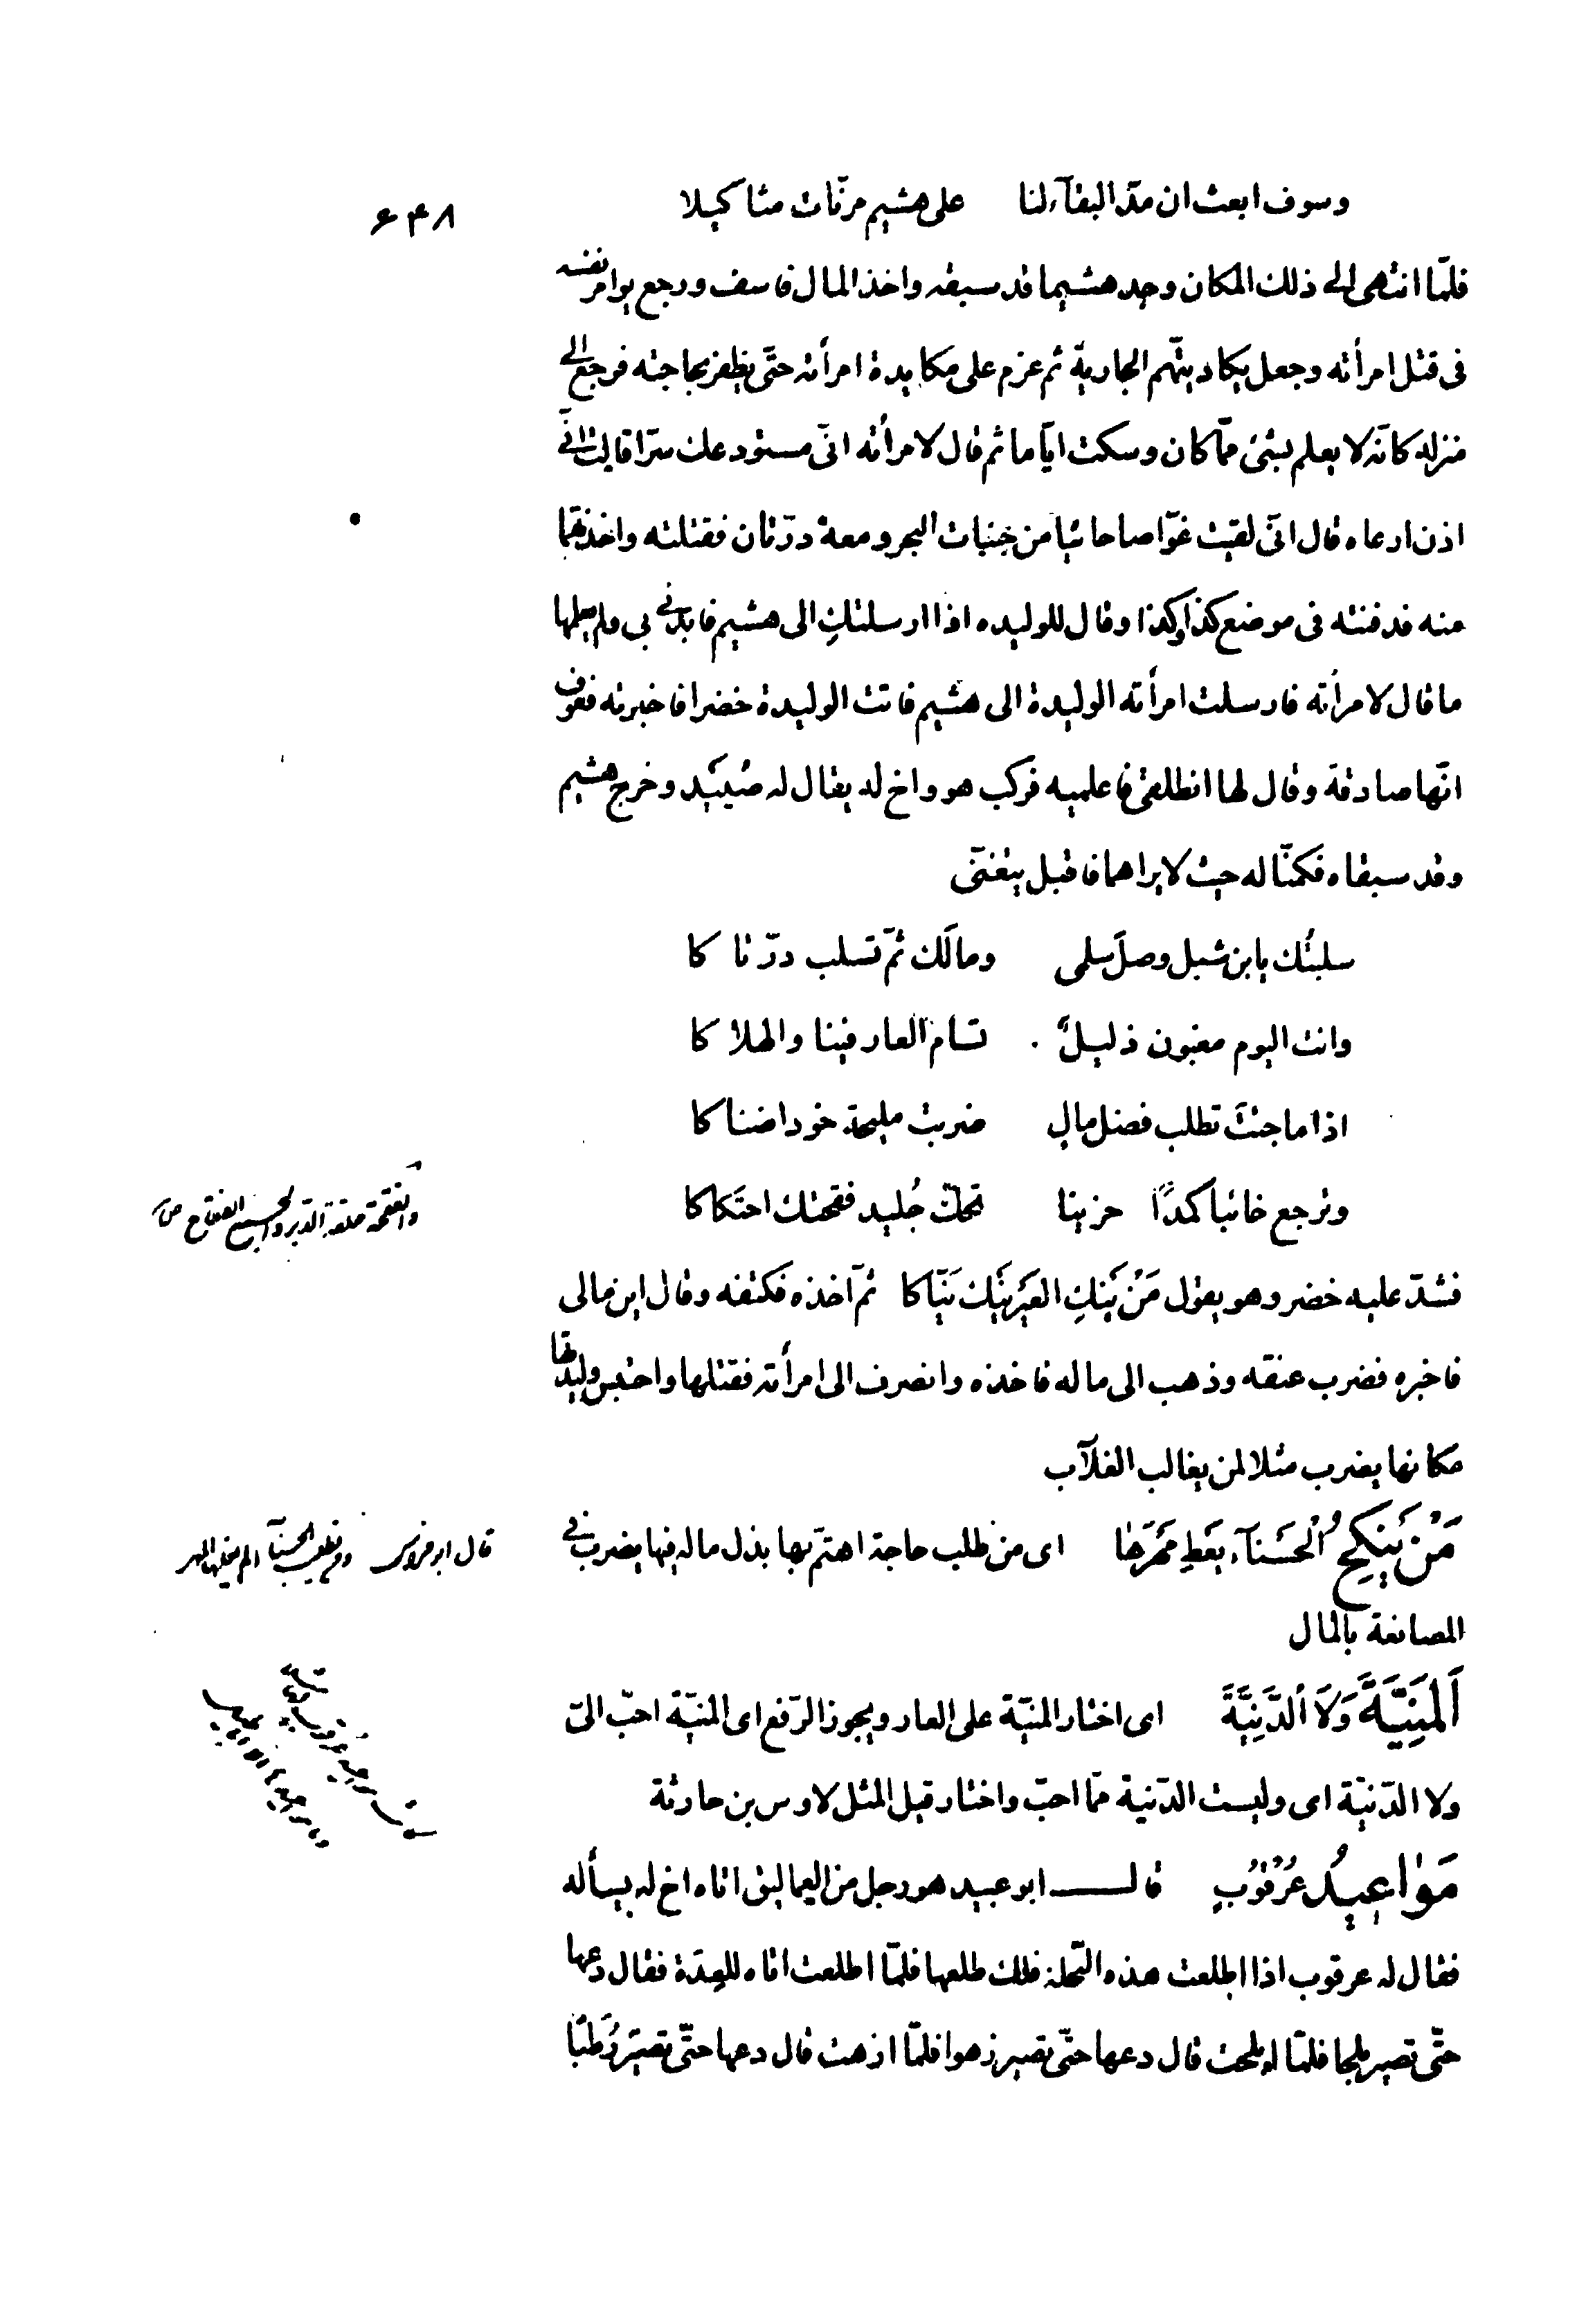 ۶۴۸
وسوف ابعث ان مدّ البقآء لنا على هشيم مرنّات مثاكيلا
فلمّا انتهى الى ذلك المكان وجد هشيما قد سبقه واخذ المال فاسف ورجع يوامر نفسه
فى قتل امرأته وجعل يكاد يتّهم الجارية ثم عزم على مكايدة امرأته حتّى يظفر بحاجته فرجع الى
منزله كانّه لا يعلم بشئ ممّا كان وسكت ايّاما ثم قال لامرأته انّى مستودعك سرّا قالت انّى
اذن ارعاه قال انّى لقيت غوّاصا جائيا من جنبات البحر ومعه درّتان فقتلته واخذتهما
منه فدفنته فى موضع كذا وكذا وقال للوليده اذا ارسلتك الى هشيم فابدئى بى ولم يعلمها
ما قال لامرأته فارسلت امرأته الوليدة الى هشيم فاتت الوليدة خضرا فاخبرته فعرف
انّها صادقة وقال لها انطلقى فاعلميه فركب هو واخ له يقال له صُيَيْد وخرج هشيم
وقد سبقاه فكمنا له حيث لا يراهما فاقبل يتغنّى
سلبتُك يا بن شبل وصلَ سلمى ومالَك ثمّ تسلب درّتاكا
وانت اليوم مغبون ذليلٌ تسام العار فينا والهلاكا
اذا ما جئتَ تطلب فضل مال ضربت مليحة خودا ضناكا
وترجع خائبا كمدًا حزينا تحكّ جُليد فقحتك احتكاكا
والفقحة حلقة الدبر والجميع الفقاح ص
فشدّ عليه خضر وهو يقول مَنْ يَنِكِ العَيْرَ يَنِك نَيّاكا ثمّ اخذه فكتفه وقال اين مالى
فاخبره فضرب عنقه وذهب الى ماله فاخذه وانصرف الى امرأته فقتلها واحتبس وليدتها
مكانها يضرب مثلا لمن يغالب الغلّاب
مَنْ يَنكِحُ الْحَسنآء يعَطِ مَهْرَهَا اى من طلب حاجة اهتمّ بها بذل ماله فيها يضرب فى
قال ابو فراس ومن خطب الحسنآ لم يغلها المهر
المصانعة بالمال
اَلْمَنِيَّةَ وَلَا الدَّنِيَّةَ اى اختار المنيّة على العار ويجوز الرّفع اى المنيّة احبّ الىّ
ولا الدّنيّة اى وليست الدّنية ممّا احبّ واختار قيل المثل لاوس بن حارثة
مَوٰاعِيدُ عُرْقُوبٍ قال ابو عبيد هو رجل من العماليق اتاه اخ له يسأله
فقال له عرقوب اذا اطلعت هذه النّخلة فلك طلعها فلمّا اطلعت اتاه للعِدَة فقال دعها
حتّى تصير بلحا فلمّا ابلحت قال دعها حتّى تصير زهوا فلمّا ازهت قال دعها حتّى تصير رُطَبًا